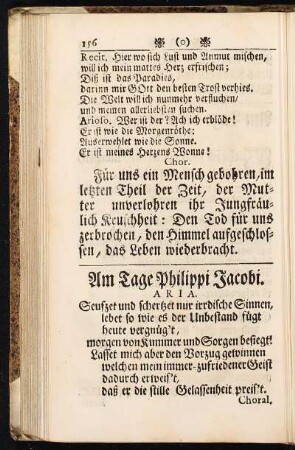 156 (o)
Recit. Hier wo sich Lust und Anmut mischen,
will ich mein mattes Hertz erfrischen;
Diß ist das Paradies,
darinn mir GOtt den besten Trost verhies.
Die Welt will ich nunmehr verfluchen,
und meinen allerliebsten suchen.
Arioso. Wer ist der? Ach ich erblöde!
Er ist wie die Morgenröthe:
Auserwehlet wie die Sonne.
Er ist meines Hertzens Wonne!
Chor.
Für uns ein Mensch gebohren, im
letzten Theil der Zeit, der Mut-
ter unverlohren ihr Jungfräu-
lich Keuschheit: Den Tod für uns
zerbrochen, den Himmel aufgeschlos-
sen, das Leben wiederbracht.
Am Tage Philippi Jacobi.
ARIA.
Seufzet und schertzet nur irrdische Sinnen,
lebet so wie es der Unbestand fügt
heute vergnüg't,
morgen von Kummer und Sorgen besiegt!
Lasset mich aber den Vorzug gewinnen
welchen mein immer-zufriedener Geist
dadurch erweis't,
daß er die stille Gelassenheit preis't.
Choral.